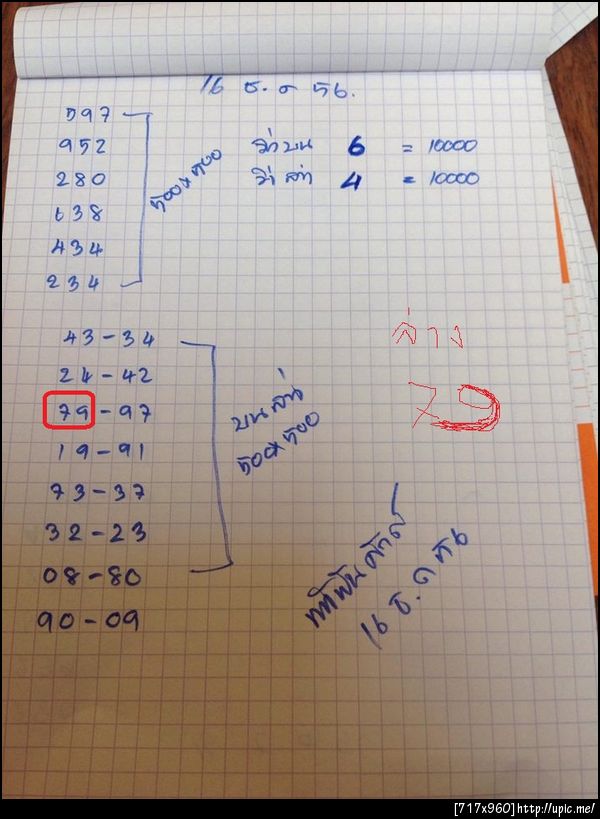 16 ธ.ค 56.
597
952
280
638
434
234
500x500
วิ่งบน 6 = 10000
วิ่งล่าง 4 = 10000
43-34
24-42
79-97
19-91
73-37
32-23
08-80
90-09
บนล่าง
500x500
ล่าง
79
16 ธ.ค 56
[717x960]http://upic.me/